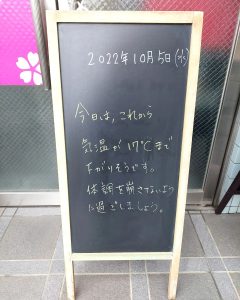 2022年10月5日(水)
今日は、これから
気温が17℃まで
下がりそうです。
体調を崩さないよう
に過ごしましょう。